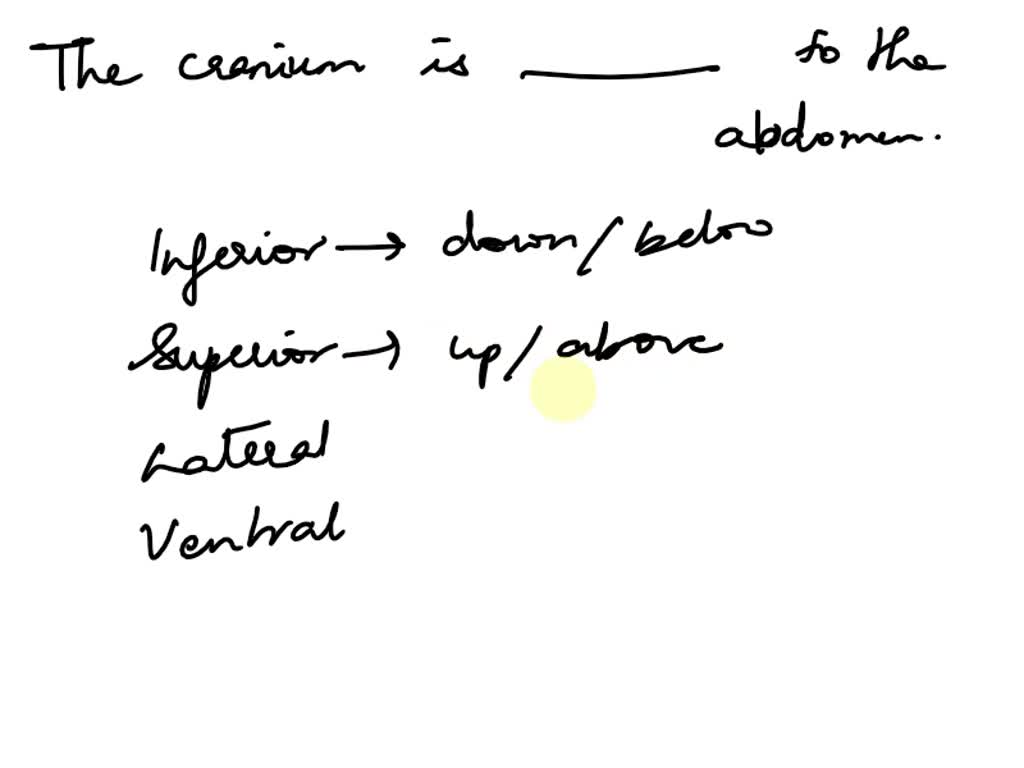 The cranium is ______ to the
abdomen.
Inferior → down/below
Superior → up/above
Lateral
Ventral